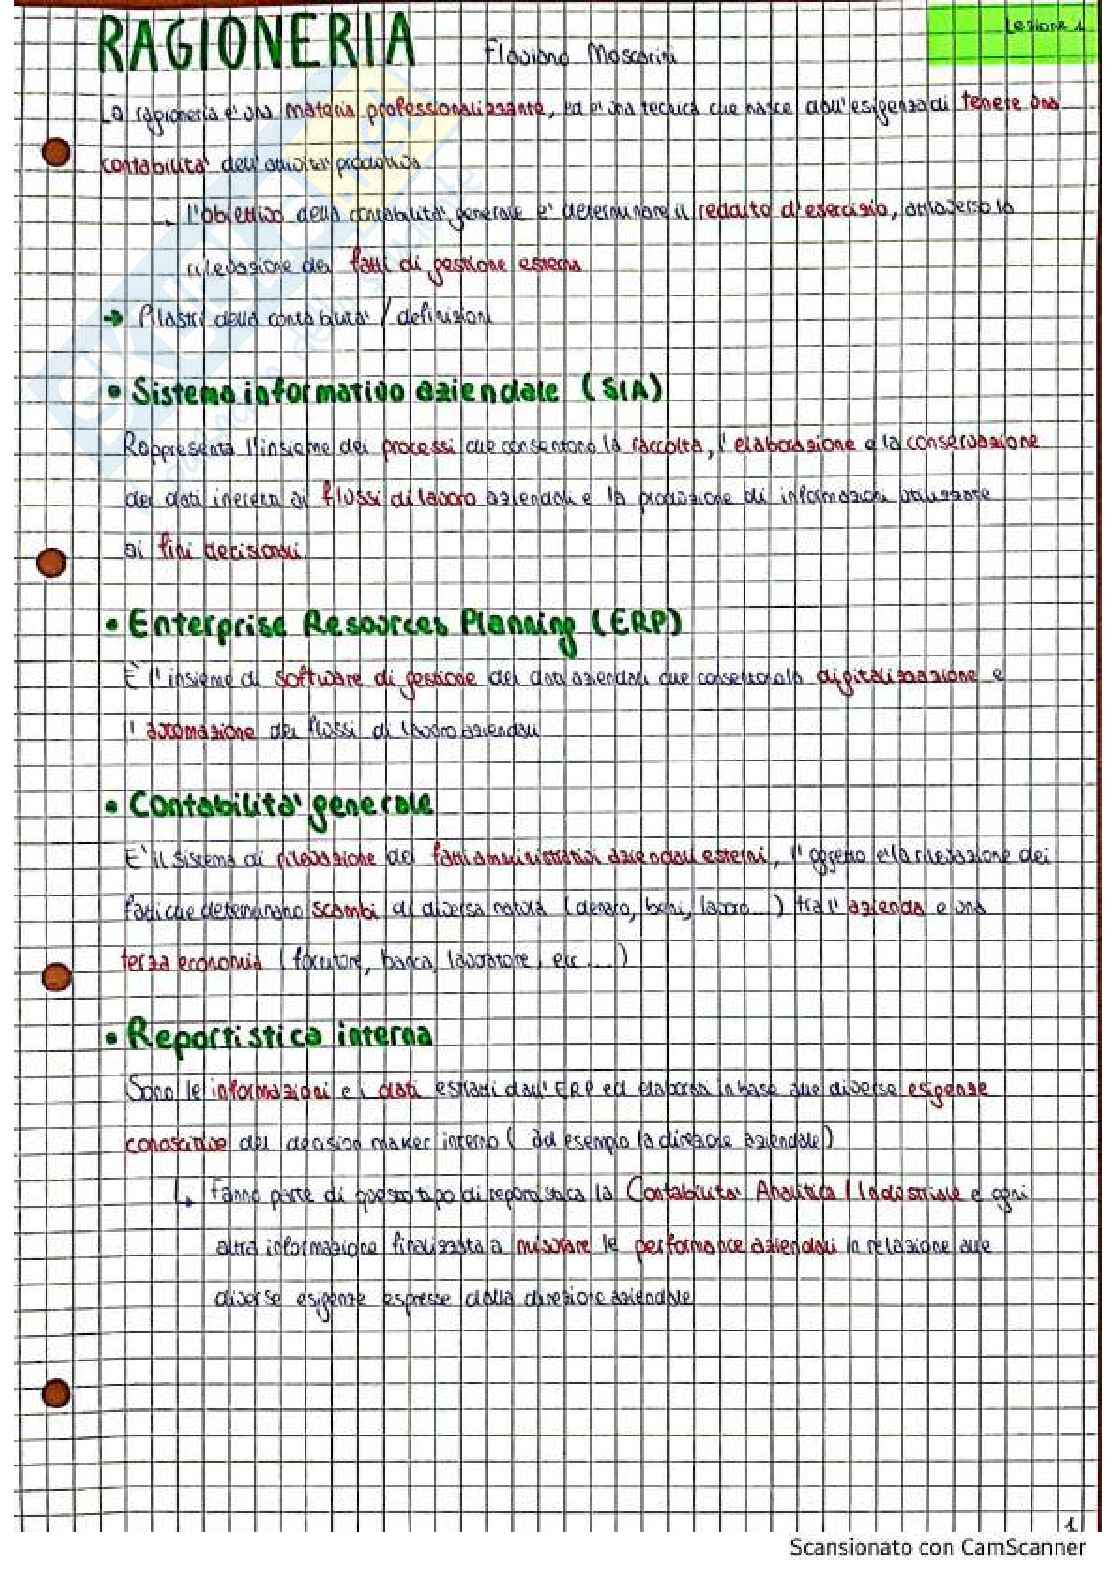 Lezione 1
RAGIONERIA Flaviano Moscarini
La ragioneria e' una materia professionalizzante, ed e' una tecnica che nasce dall'esigenza di tenere una
contabilita' dell'attivita' produttiva
l'obiettivo della contabilita' generale e' determinare il reddito d'esercizio, attraverso la
rilevazione dei fatti di gestione esterna
→ Pilastri della contabilita' / definizioni
• Sistema informativo aziendale (SIA)
Rappresenta l'insieme dei processi che consentono la raccolta, l'elaborazione e la conservazione
dei dati inerenti ai flussi di lavoro aziendali e la produzione di informazioni utilizzate
ai fini decisionali
• Enterprise Resources Planning (ERP)
È l'insieme di software di gestione dei dati aziendali che consentono la digitalizzazione e
l'automazione dei flussi di lavoro aziendali
• Contabilita' generale
E' il sistema di rilevazione dei fatti amministrativi aziendali esterni, l'oggetto e' la rilevazione dei
fatti che determinano scambi di diversa natura (denaro, beni, lavoro...) tra l'azienda e una
terza economia (fornitore, banca, lavoratore, ecc....)
• Reportistica interna
Sono le informazioni e i dati estratti dall'ERP ed elaborati in base alle diverse esigenze
conoscitive del decision maker interno (ad esempio la direzione aziendale)
↳ Fanno parte di questo tipo di reportistica la Contabilita' Analitica / Industriale e ogni
altra informazione finalizzata a misurare le performance aziendali in relazione alle
diverse esigenze espresse dalla direzione aziendale
1
Scansionato con CamScanner